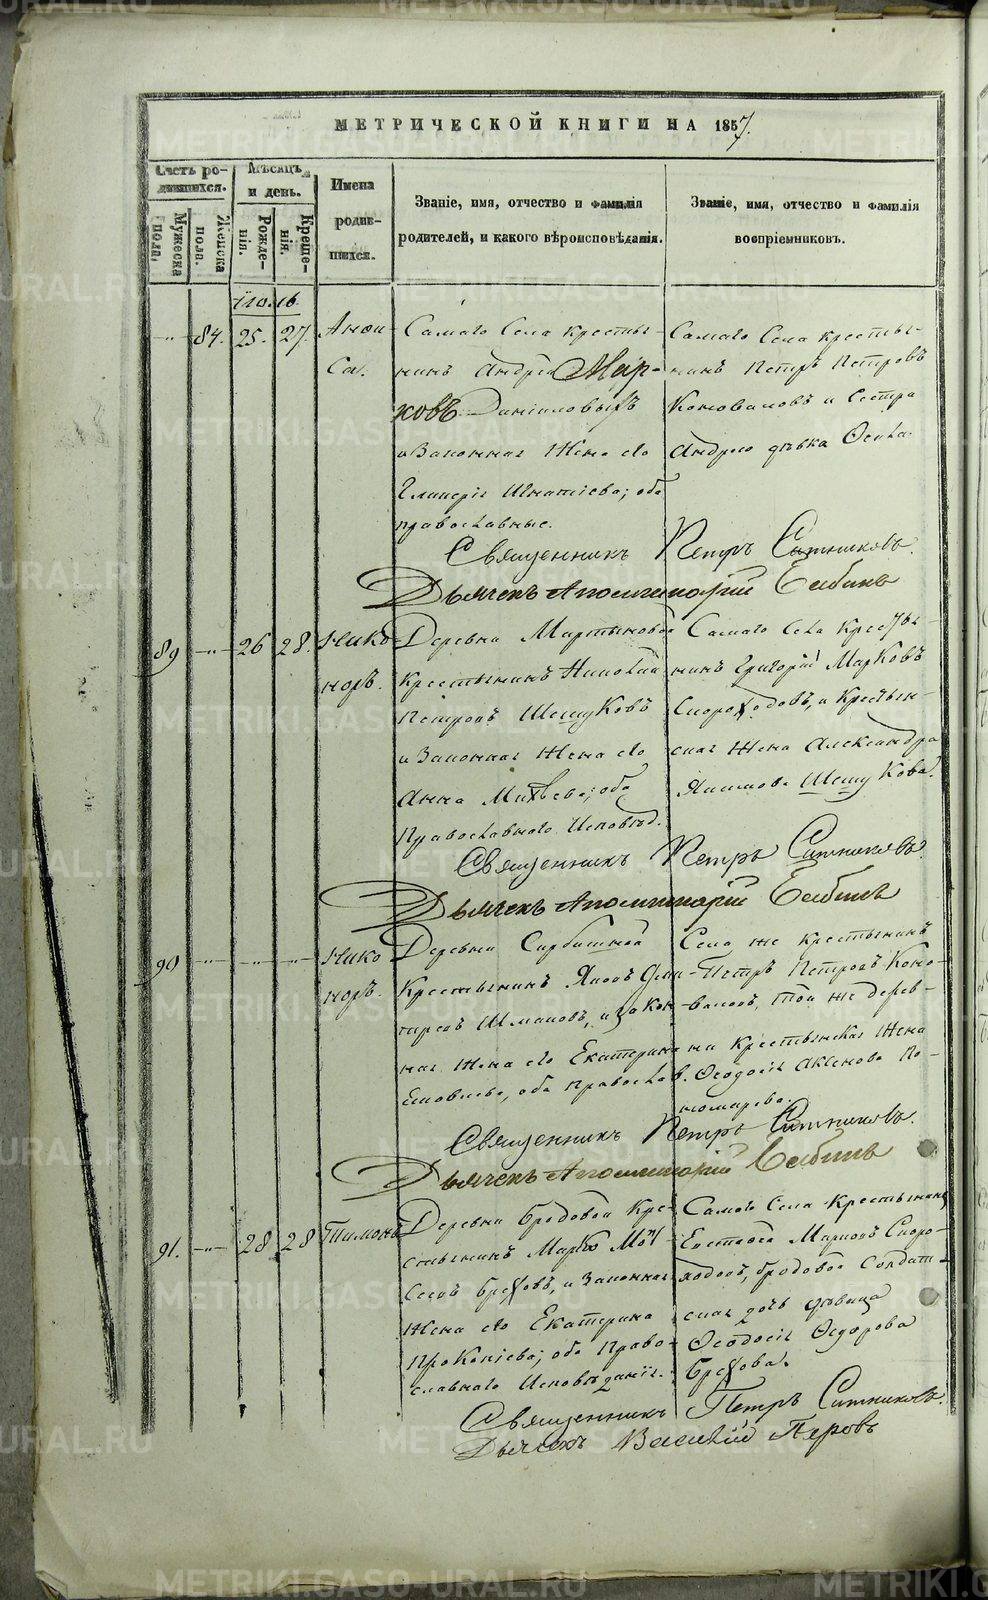 МЕТРИЧЕСКОЙ КНИГИ НА 1857.
Счетъ ро-
дившихся.
Мужеска
пола.
Женска
пола.
Мѣсяцъ
и день.
Рожде-
нія.
Креще-
нія.
Имена
родив-
шихся.
Званіе, имя, отчество и фамилія
родителей, и какого вѣроисповѣданія.
Званіе, имя, отчество и фамилія
воспріемниковъ.
Іюль
84. 25. 27. Анфи-
са.
Самаго Села кресть-
нинъ Андрей Мар-
ковъ Даниловыхъ
и Законная Жена его
Гликерія Игнатіева; оба
православные.
Самаго Села кресть-
нинъ Петръ Петровъ
Коноваловъ и Сестра
Андрея дѣвка
Священникъ Петръ Ситниковъ.
Дьячекъ Аполлинарій
89 26 28. Нико-
норъ.
Деревни Мартыновой
Крестьянинъ Николай
Петровъ Шешуковъ
и Законная Жена его
Анна Михѣева; оба
Православнаго Исповѣд.
Самаго Села Кресть-
нинъ Григорій Марковъ
Скороходовъ, и Крестьян-
ская Жена Александра
Якимова Шешукова.
Священникъ Петръ Ситниковъ.
Дьячекъ Аполлинарій
90 Нико-
норъ.
Деревни
Крестьянинъ Яковъ
Шмаковъ, и закон-
ная Жена его Екатерина
оба Православ.
Села же крестьянинъ
Петръ Петровъ Коно-
валовъ, той же дерев-
ни крестьянская Жена
Феодосія Аксенова По-
номарева.
Священникъ Петръ Ситниковъ.
Дьячекъ Аполлинарій
91. 28 28 Тимонъ
Деревни Бродовой Кре-
стьянинъ Марко Мои-
сеевъ Бреховъ, и Законная
Жена его Екатерина
Прокопіева; оба Право-
славнаго Исповѣданія.
Самаго Села Крестьянинъ
Марковъ Скоро-
ходовъ, бродовая Солдат-
ская дочь дѣвица
Феодосія Федорова
Брехова.
Священникъ Петръ Ситниковъ.
Дьячекъ Василій Перовъ
METRIKI.GASO-URAL.RU